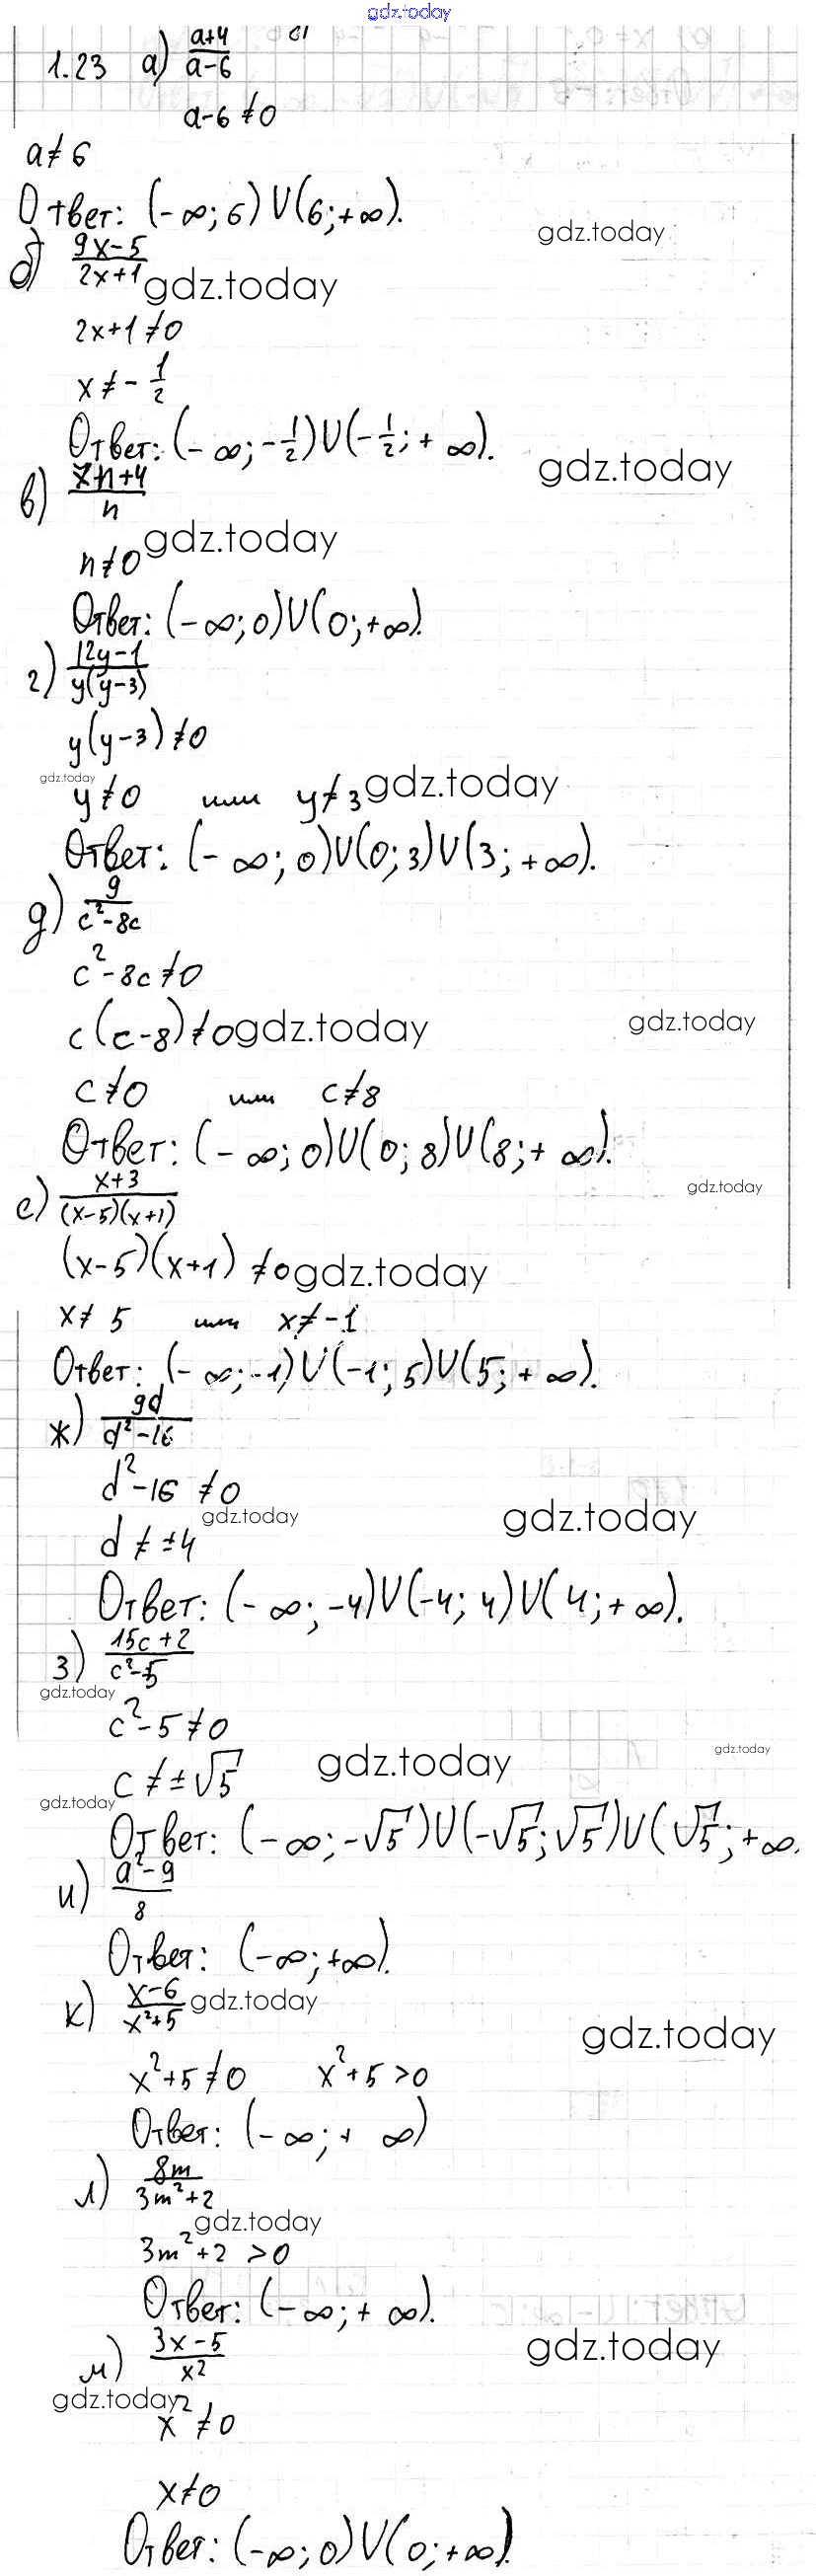 gdz.today
1.23 а) (a+4)/(a-6)
a-6 ≠ 0
a ≠ 6
Ответ: (-∞; 6) U (6; +∞).
gdz.today
б) (9x-5)/(2x+1)
gdz.today
2x+1 ≠ 0
x ≠ -1/2
Ответ: (-∞; -1/2) U (-1/2; +∞).
gdz.today
в) (7n+4)/n
gdz.today
n ≠ 0
Ответ: (-∞; 0) U (0; +∞).
г) (12y-1)/(y(y-3))
y(y-3) ≠ 0
gdz.today
y ≠ 0 или y ≠ 3 gdz.today
Ответ: (-∞; 0) U (0; 3) U (3; +∞).
д) 9/(c²-8c)
c²-8c ≠ 0
c(c-8) ≠ 0 gdz.today gdz.today
c ≠ 0 или c ≠ 8
Ответ: (-∞; 0) U (0; 8) U (8; +∞).
gdz.today
е) (x+3)/((x-5)(x+1))
(x-5)(x+1) ≠ 0 gdz.today
x ≠ 5 или x ≠ -1
Ответ: (-∞; -1) U (-1; 5) U (5; +∞).
ж) 9d/(d²-16)
d²-16 ≠ 0
gdz.today gdz.today
d ≠ ±4
Ответ: (-∞; -4) U (-4; 4) U (4; +∞).
з) (15c+2)/(c²-5)
gdz.today
c²-5 ≠ 0
gdz.today gdz.today
c ≠ ±√5
gdz.today
Ответ: (-∞; -√5) U (-√5; √5) U (√5; +∞.
и) (a²-9)/8
Ответ: (-∞; +∞).
к) (x-6)/(x²+5) gdz.today
gdz.today
x²+5 ≠ 0 x²+5 > 0
Ответ: (-∞; +∞)
л) 8m/(3m²+2)
gdz.today
3m²+2 > 0
Ответ: (-∞; +∞).
м) (3x-5)/x²
gdz.today
gdz.today
x² ≠ 0
x ≠ 0
Ответ: (-∞; 0) U (0; +∞).